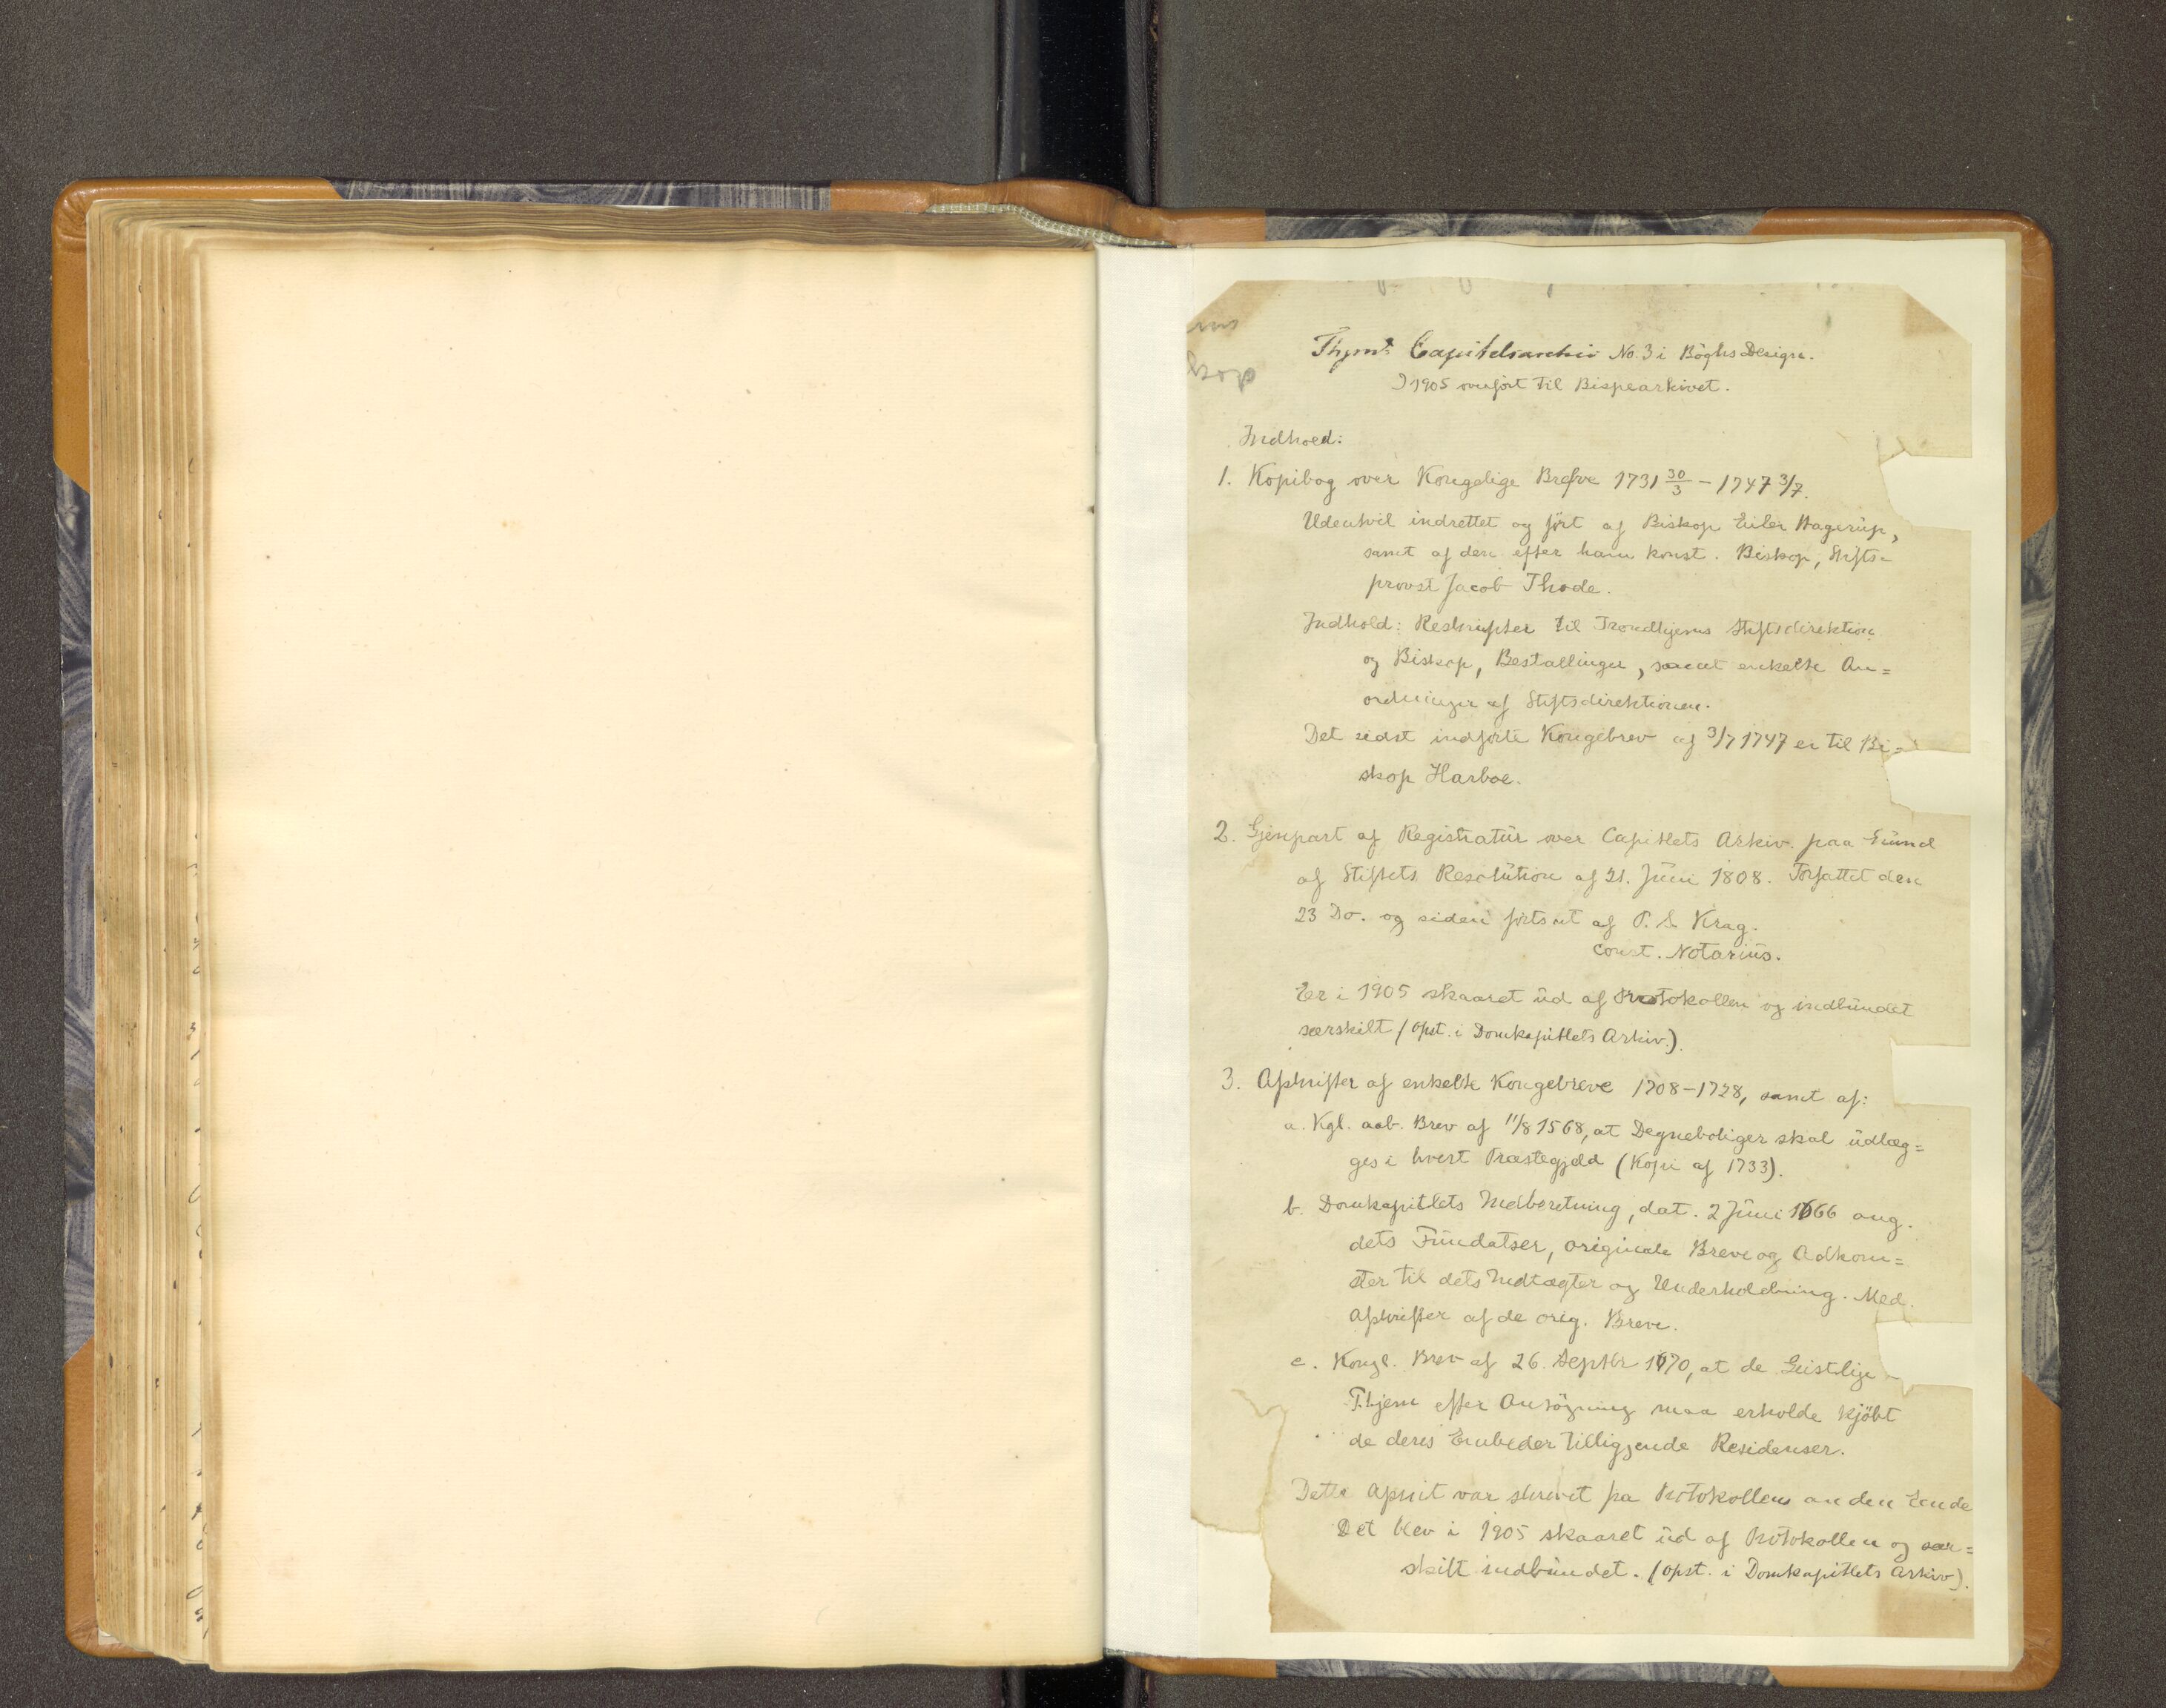 Thjms Capitelsarchiv No. 3 i Böghs Design.
I 1905 overført til Bispearkivet.
Indhold:
1. Kopibog over Kongelige Breve 1731 30/3 - 1747 3/7.
Udentvil indrettet og ført af Biskop Eiler Hagerup,
samt af den efter ham konst. Biskop, Stifts-
provst Jacob Thode.
Indhold: Reskripter til Trondhjems Stiftsdirektion
og Biskop, Bestallinger, samt enkelte An=
ordninger af Stiftsdirektionen.
Det sidst indførte Kongebrev af 3/7 1747 er til Bi=
skop Harboe.
2. Gjenpart af Registratur over Capitlets Arkiv paa Grund
af Stiftets Resolution af 21. Juni 1808. Forfattet den
23 Do. og siden fortsat af P. S. Krag.
const. Notarius.
Er i 1905 skaaret ud af Protokollen og indbundet
særskilt (opst. i Domkapitlets Arkiv).
3. Afskrifter af enkelte Kongebreve 1708-1728, samt af:
a. Kgl. aab. Brev af 11/8 1568, at Degneboliger skal udlæg=
ges i hvert Præstegjeld (Kopi af 1733).
b. Domkapitlets Indberetning, dat. 2 Juni 1666 ang.
dets Fundatser, originale Breve og Adkom=
ster til dets Indtægter og Underholdning. Med
Afskrifter af de orig. Breve.
c. Kongl. Brev af 26. Septbr 1670, at de Geistlige
T.hjem efter Ansøgning maa erholde kjöbt
de deres Embeder tilliggende Residenser.
Dette Afsnit var skrevet pa Protokollens anden Ende
Det blev i 1905 skaaret ud af Protokollen og sær=
skilt indbundet. (opst. i Domkapitlets Arkiv).